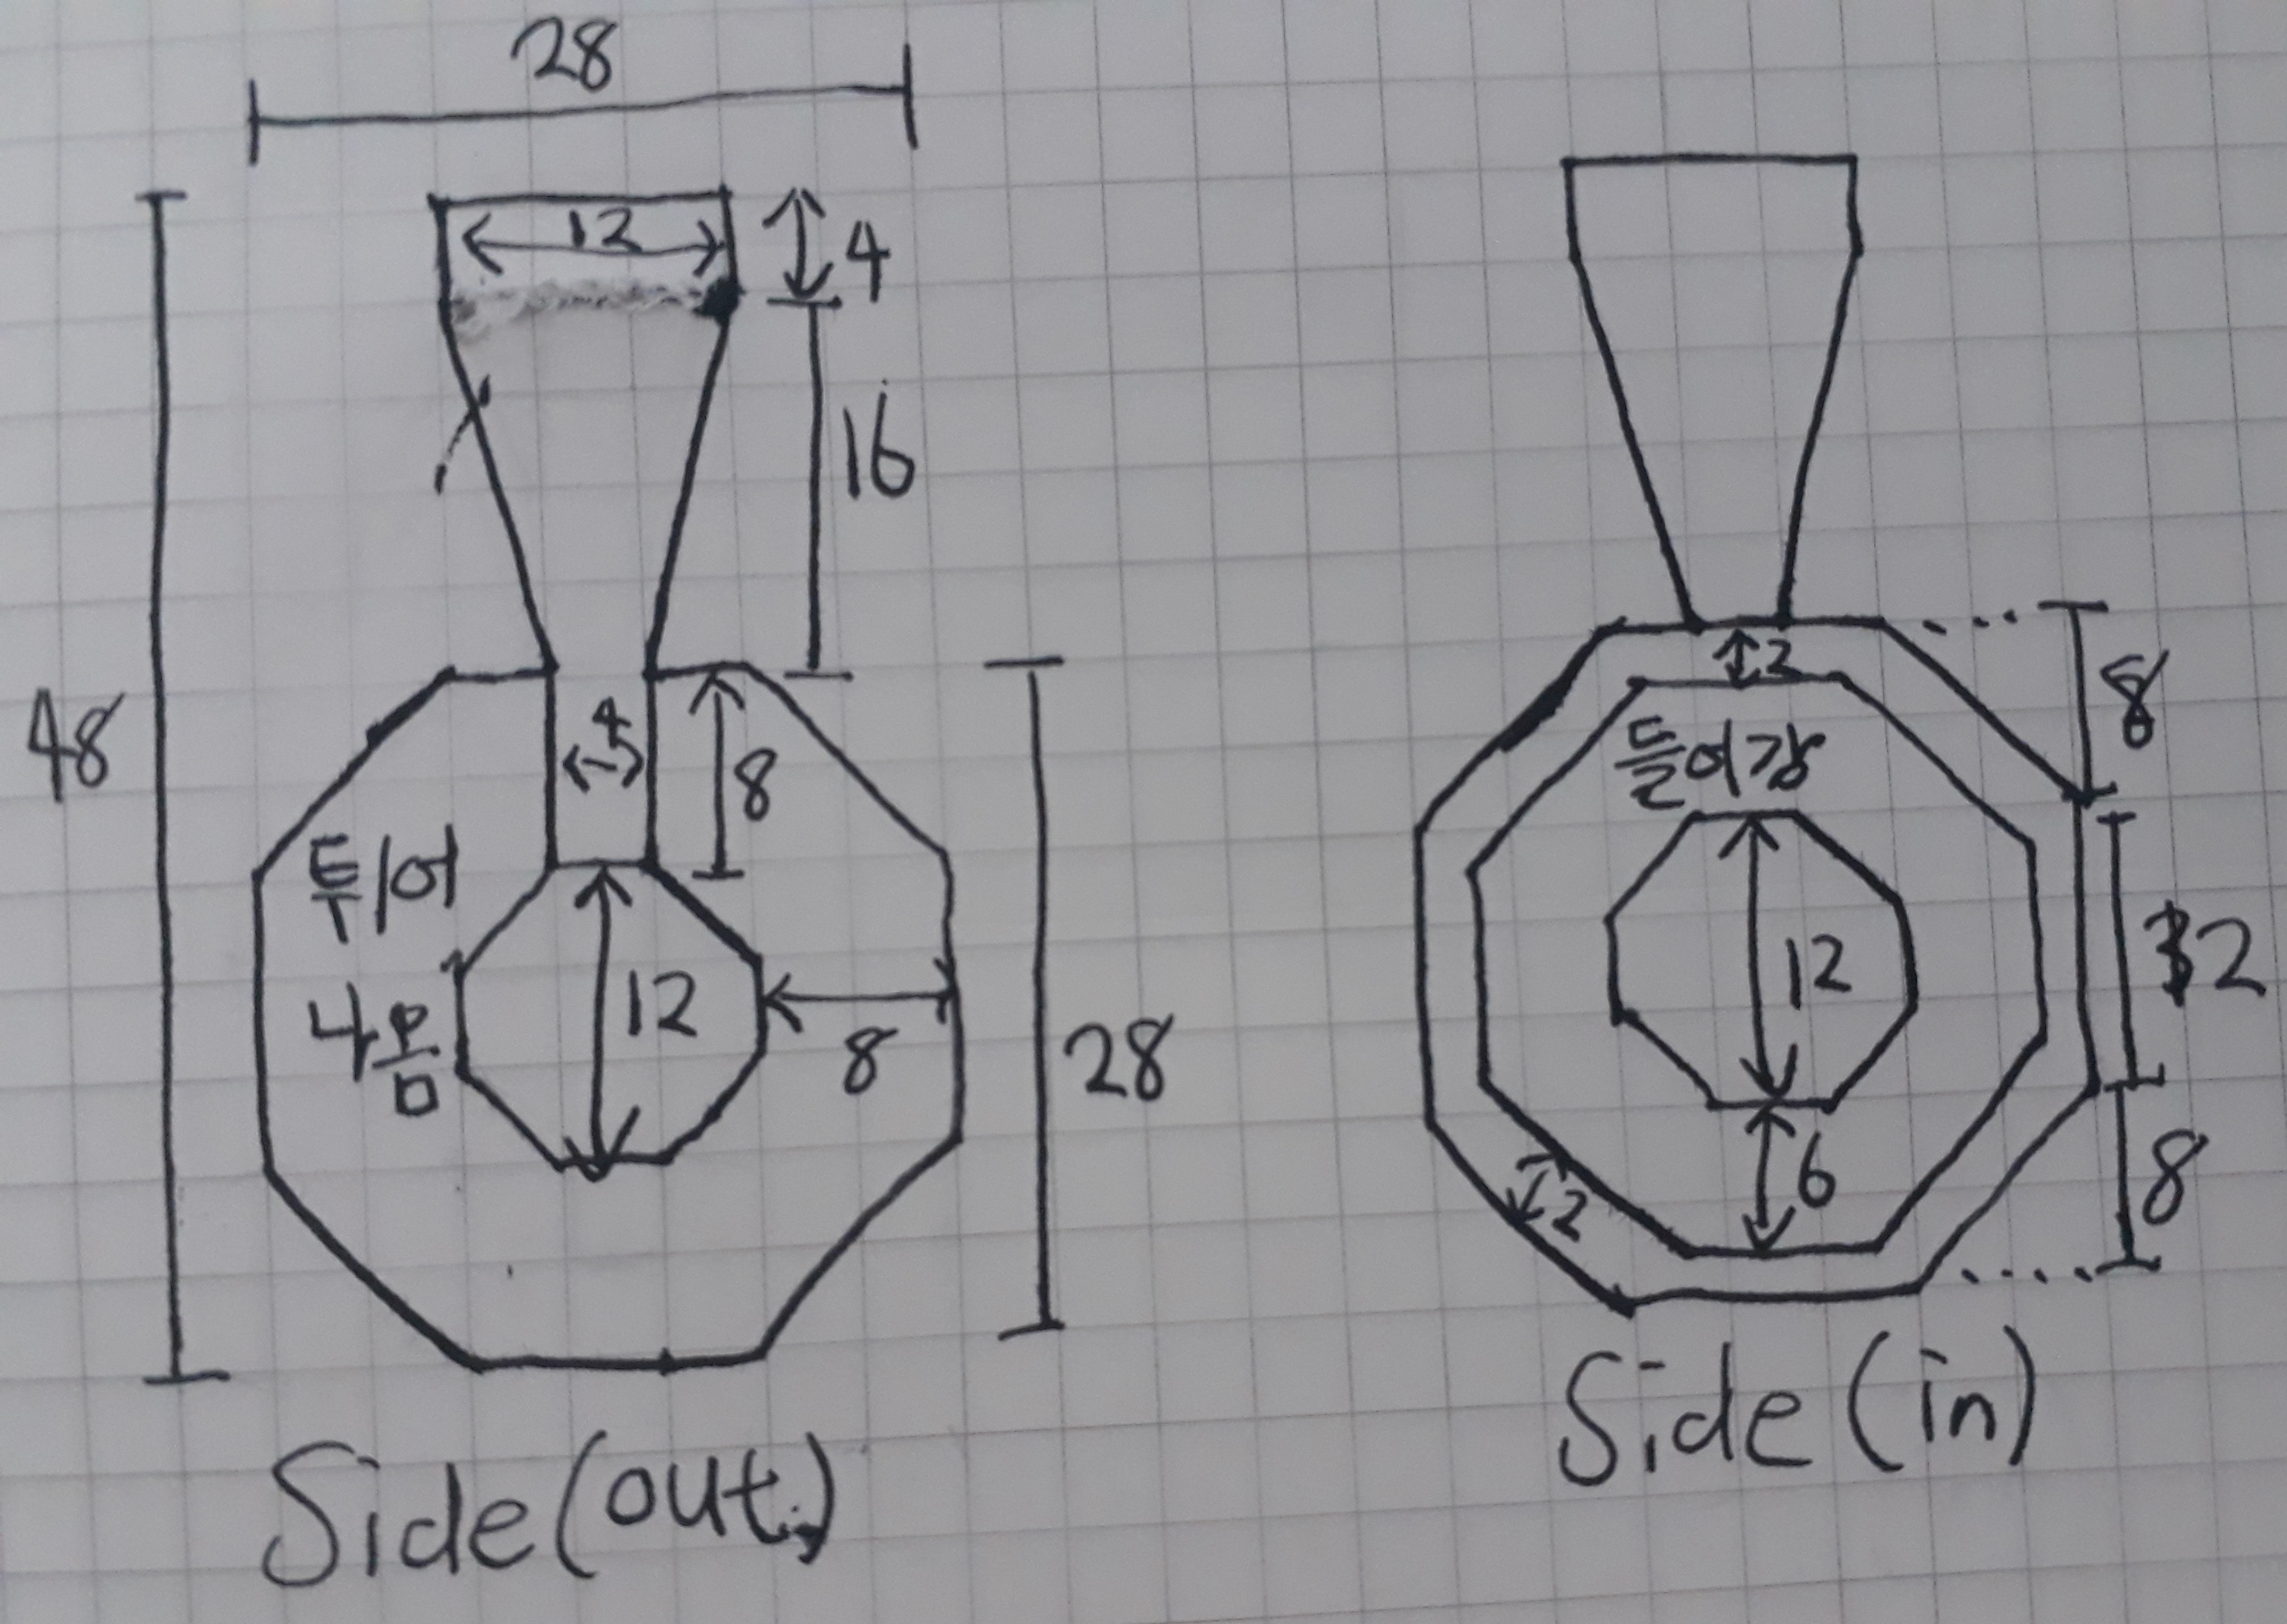 28
12
4
48
16
4
8
튀어
나옴
12
8
28
Side (out)
2
8
들어감
12
6
2
8
Side (in)